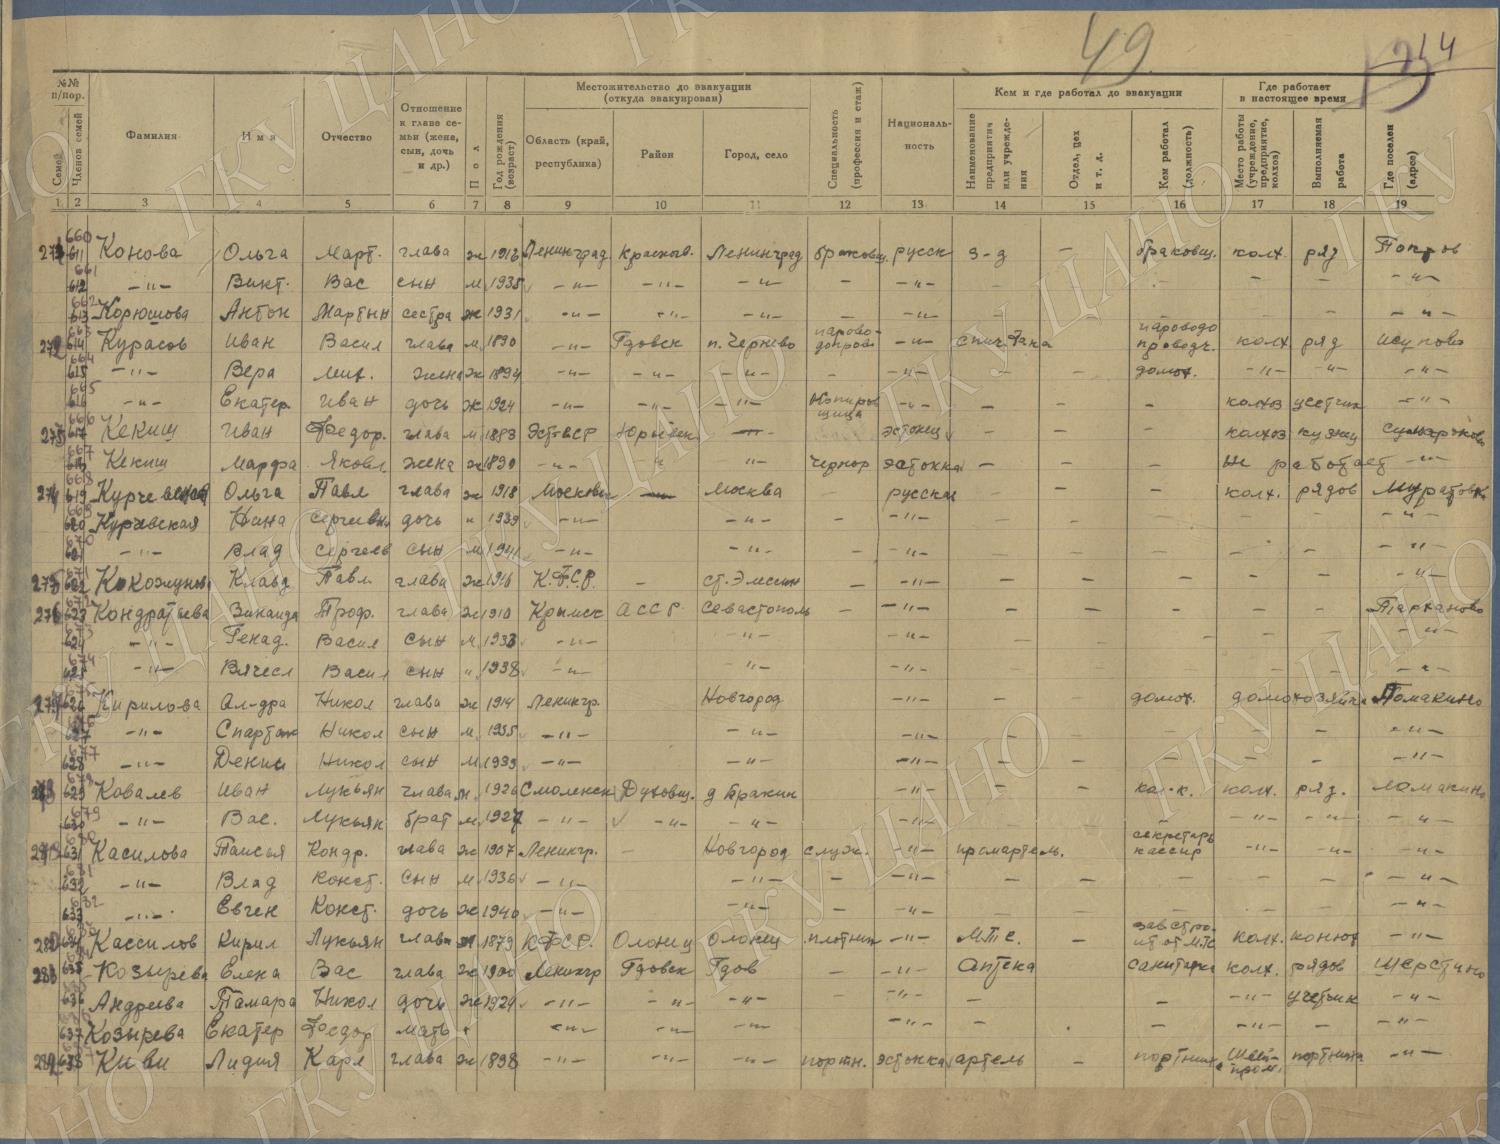 49
214
№№ п/пор.
Семей
Членов семей
Фамилия
Имя
Отчество
Отношение к главе семьи (жена, сын, дочь и др.)
Пол
Год рождения (возраст)
Местожительство до эвакуации (откуда эвакуирован)
Область (край, республика)
Район
Город, село
Специальность (профессия и стаж)
Националь-ность
Кем и где работал до эвакуации
Наименование предприятия или учреждения
Отдел, цех и т. д.
Кем работал (должность)
Где работает в настоящее время
Место работы (учреждение, предприятие, колхоз)
Выполняемая работа
Где поселен (адрес)
1 2 3 4 5 6 7 8 9 10 11 12 13 14 15 16 17 18 19
660
611 Конова Ольга Март. глава ж 1916 Ленинград Красногв. Ленинград браковщ. русск з-д — браковщ. колх. ряд
661
612 —"— Викт. Вас сын м 1935 —"— —"— —"— — —"— — — — —"—
662
613 Корюшова Антон Мартын сестра ж 1931 —"— —"— —"— — —"— — — — — — —"—
663
272 614 Курасов Иван Васил глава м. 1890 —"— Гдовск п. Чернево —"— спич. Ф-ка колх ряд Исупово
664
615 —"— Вера Мих. жена ж 1894 —"— —"— —"— — —"— — — домох. —"— —"— —"—
665
616 —"— Екатер. Иван дочь ж 1924 —"— —"— —"— Копировщица —"— — — — колхоз учетчик —"—
666
273 617 Кекиш Иван Федор. глава м. 1883 Эст. ССР эстонец — — — колхоз кузнец
667
618 Кекиш Марфа Яковл жена ж 1890 —"— —"— —"— чернор эстонка — — — не работает —"—
668
274 619 Ольга Павл глава ж 1918 Московск — Москва — русская — — — колх. рядов Муратовка
669
620 Курчевская Нина Сергеевна дочь " 1939 —"— —"— — —"— —"—
670
621 —"— Влад Сергеев сын м 1941 —"— —"— — —"— — — — — — —"—
671
275 622 Клавд Павл. глава ж 1916 К.Ф.С.Р. — — —"— — — — — — —"—
276 623 Кондратьева Зинаида Троф. глава ж 1910 Крымск АССР Севастополь — —"— — — — — — Тарханово
624 —"— Генад. Васил сын м 1933 —"— —"— —"— — — — — — —"—
625 —"— Вячесл Васил сын " 1938 —"— —"— —"— — — — — — —"—
277 626 Кирилова Ал-дра Никол глава ж 1914 Ленингр. Новгород —"— — — домох. домохозяйка Ломакино
627 —"— Спартак Никол сын м. 1935 —"— —"— —"— — — — — — —"—
628 —"— Денис Никол сын м. 1939 —"— —"— —"— — — — — — —"—
278 629 Ковалев Иван Лукьян глава м. 1926 Смоленск Духовщ. д Бракин —"— — — кол-к. колх. ряд. Ломакино
679
630 —"— Вас. Лукьян брат м 1927 —"— —"— —"— —"— — — — —"— —"— —"—
279 631 Касилова Таисья Кондр. глава ж 1907 Ленингр. — Новгород служ. —"— промартель. секретарь кассир —"— —"— —"—
632 —"— Влад Конст. сын м 1936 —"— —"— — —"— — — — — — —"—
633 —"— Евген Конст. дочь ж 1940 —"— —"— — —"— — — — — — —"—
280 634 Кассилов Кирил Лукьян глава м 1879 КФСР. Олонец Олонец плотник —"— М.Т.С. — колх. конюх —"—
281 635 Козырева Елена Вас глава ж 1900 Ленингр Гдовск Гдов — —"— Аптека санитарка колх. рядов Шерстино
636 Андреева Тамара Никол дочь ж 1924 —"— —"— —"— — —"— — — —"— учетчик —"—
637 Козырева Екатер Федор мать —"— —"— —"— —"— — — —"— — —"—
282 638 Киви Лидия Карл глава ж 1898 —"— —"— —"— портн. эстонка артель — портниха Швейпром. портниха —"—
ГКУ ЦАНО